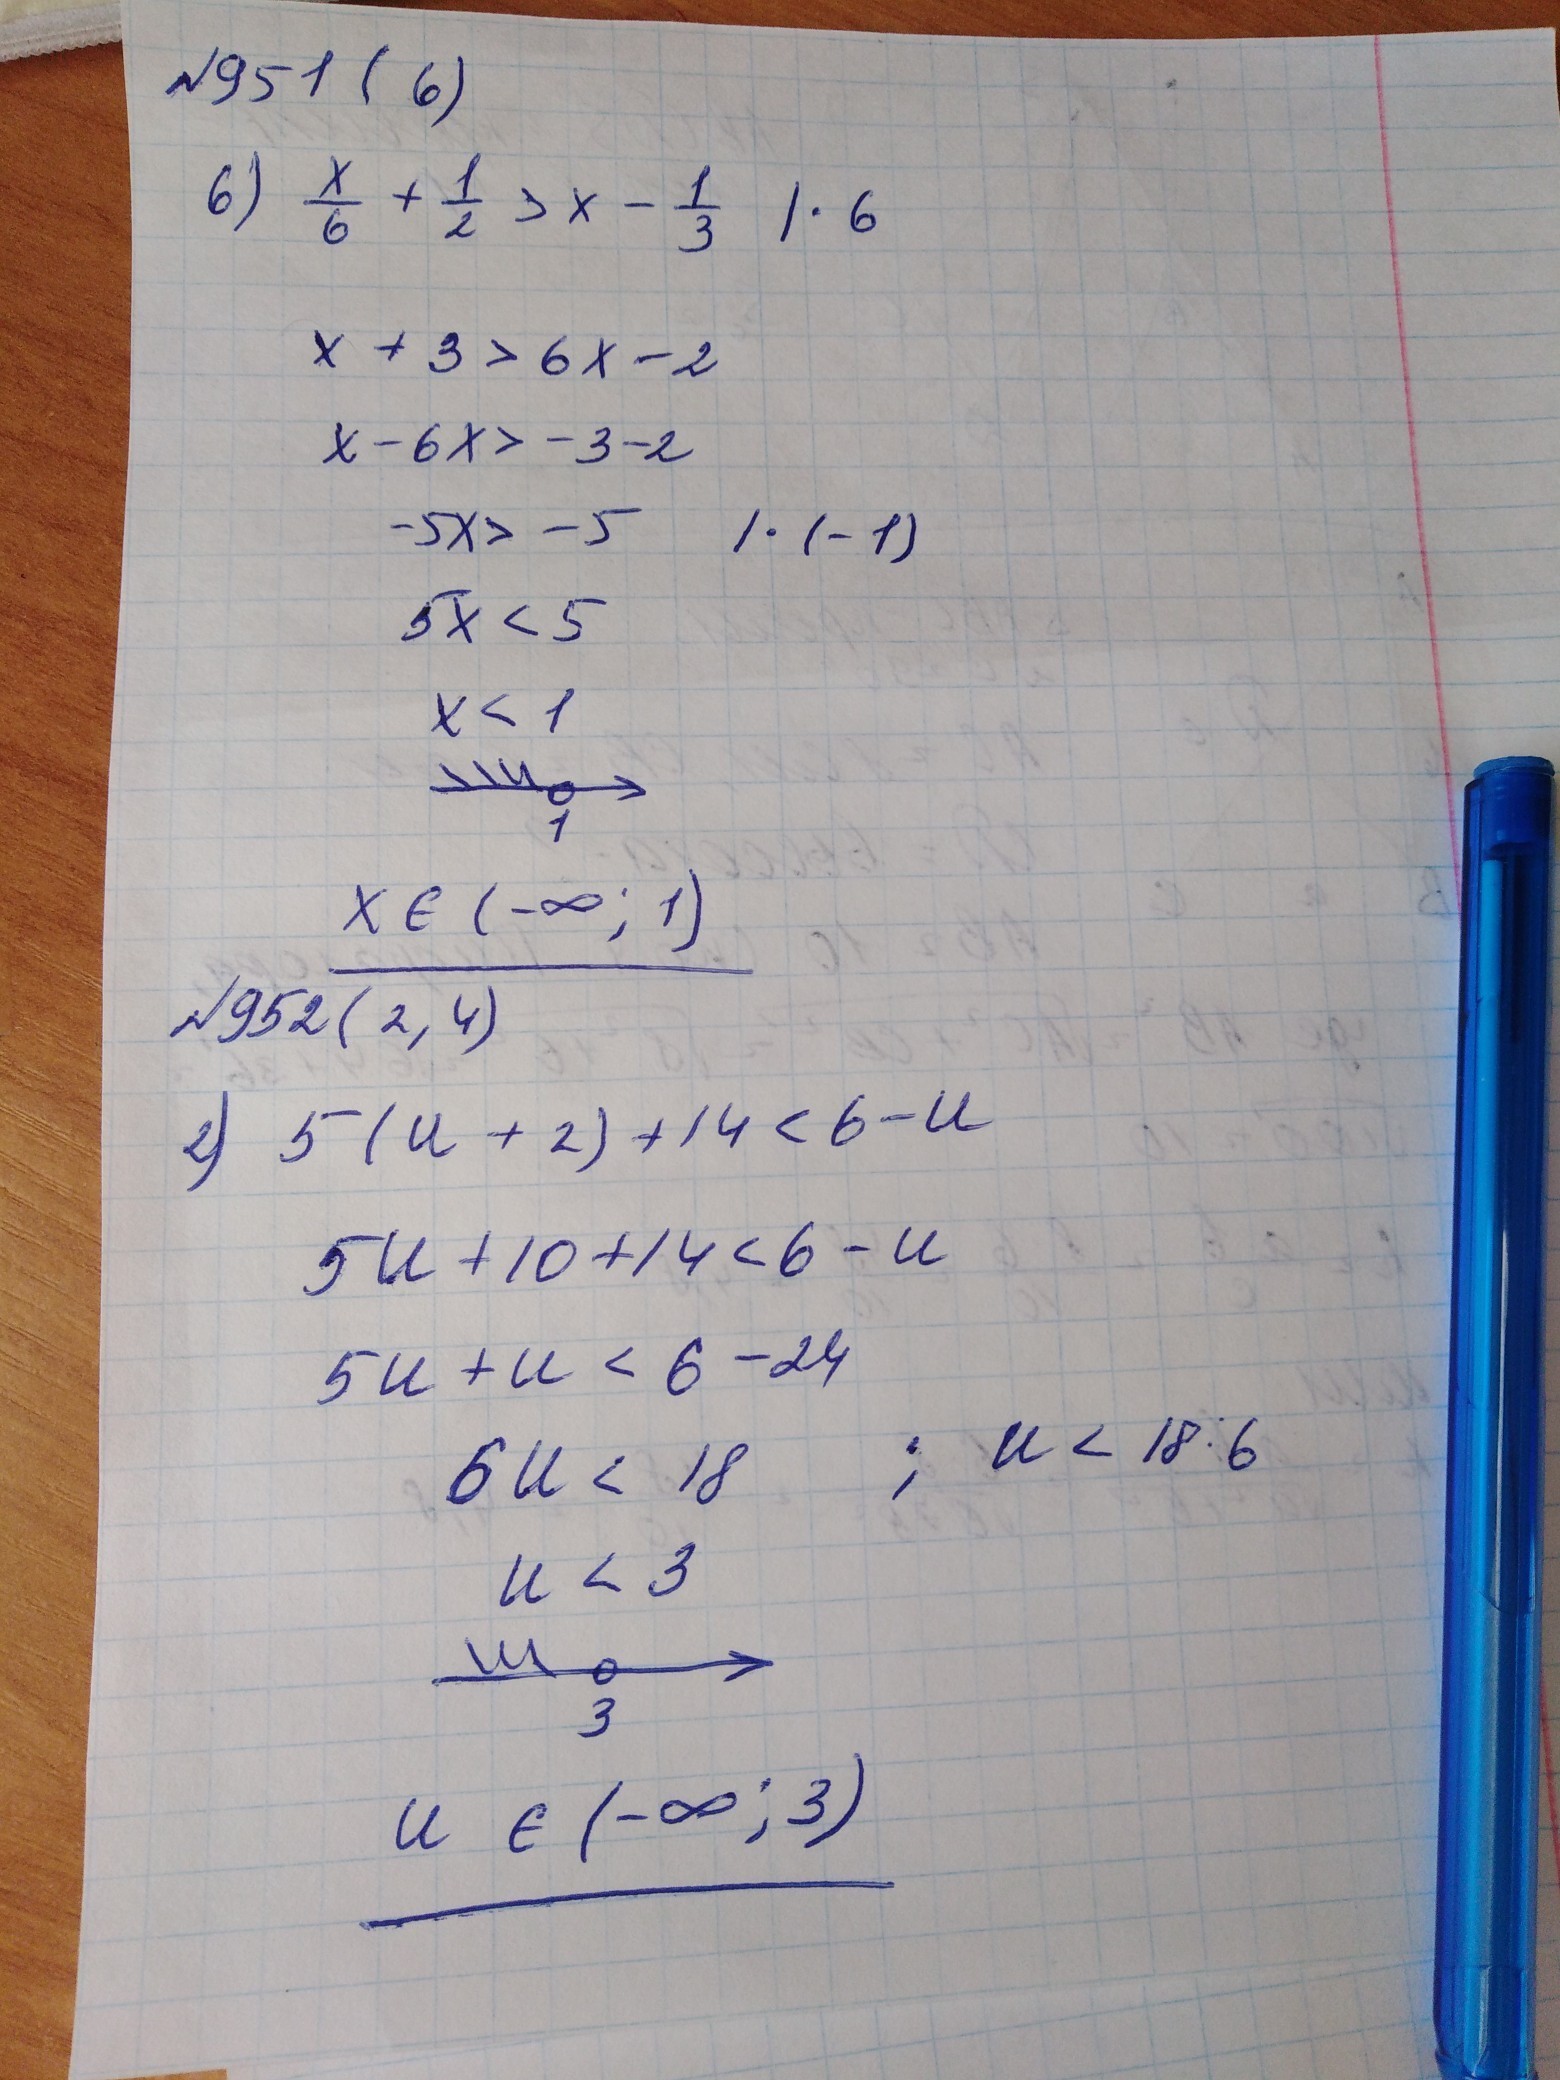 №951(6)
6) x/6 + 1/2 > x - 1/3 |·6
x + 3 > 6x - 2
x - 6x > -3-2
-5x > -5 |·(-1)
5x < 5
x < 1
1
x ∈ (-∞; 1)
№952(2,4)
2) 5(u + 2) + 14 < 6 - u
5u + 10 + 14 < 6 - u
5u + u < 6 - 24
6u < 18 ; u < 18:6
u < 3
3
u ∈ (-∞; 3)